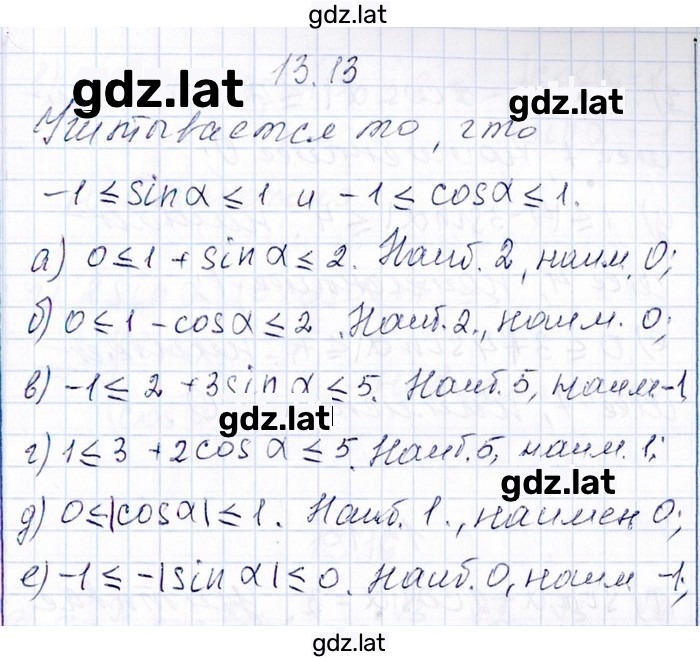 gdz.lat
13.13
gdz.lat
gdz.lat
Учитывается то, что
-1 ≤ sin α ≤ 1 и -1 ≤ cos α ≤ 1.
а) 0 ≤ 1 + sin α ≤ 2. Наиб. 2, наим. 0;
б) 0 ≤ 1 - cos α ≤ 2. Наиб. 2., наим. 0;
в) -1 ≤ 2 + 3 sin α ≤ 5. Наиб. 5, наим -1
gdz.lat
г) 1 ≤ 3 + 2 cos α ≤ 5. Наиб. 5, наим. 1;
gdz.lat
д) 0 ≤ |cos α| ≤ 1. Наиб. 1., наимен 0;
е) -1 ≤ -|sin α| ≤ 0. Наиб. 0, наим -1;
gdz.lat